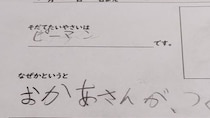 そだてたいやさいは
ピーマン です。
なぜかというと
おかあさんが、つ